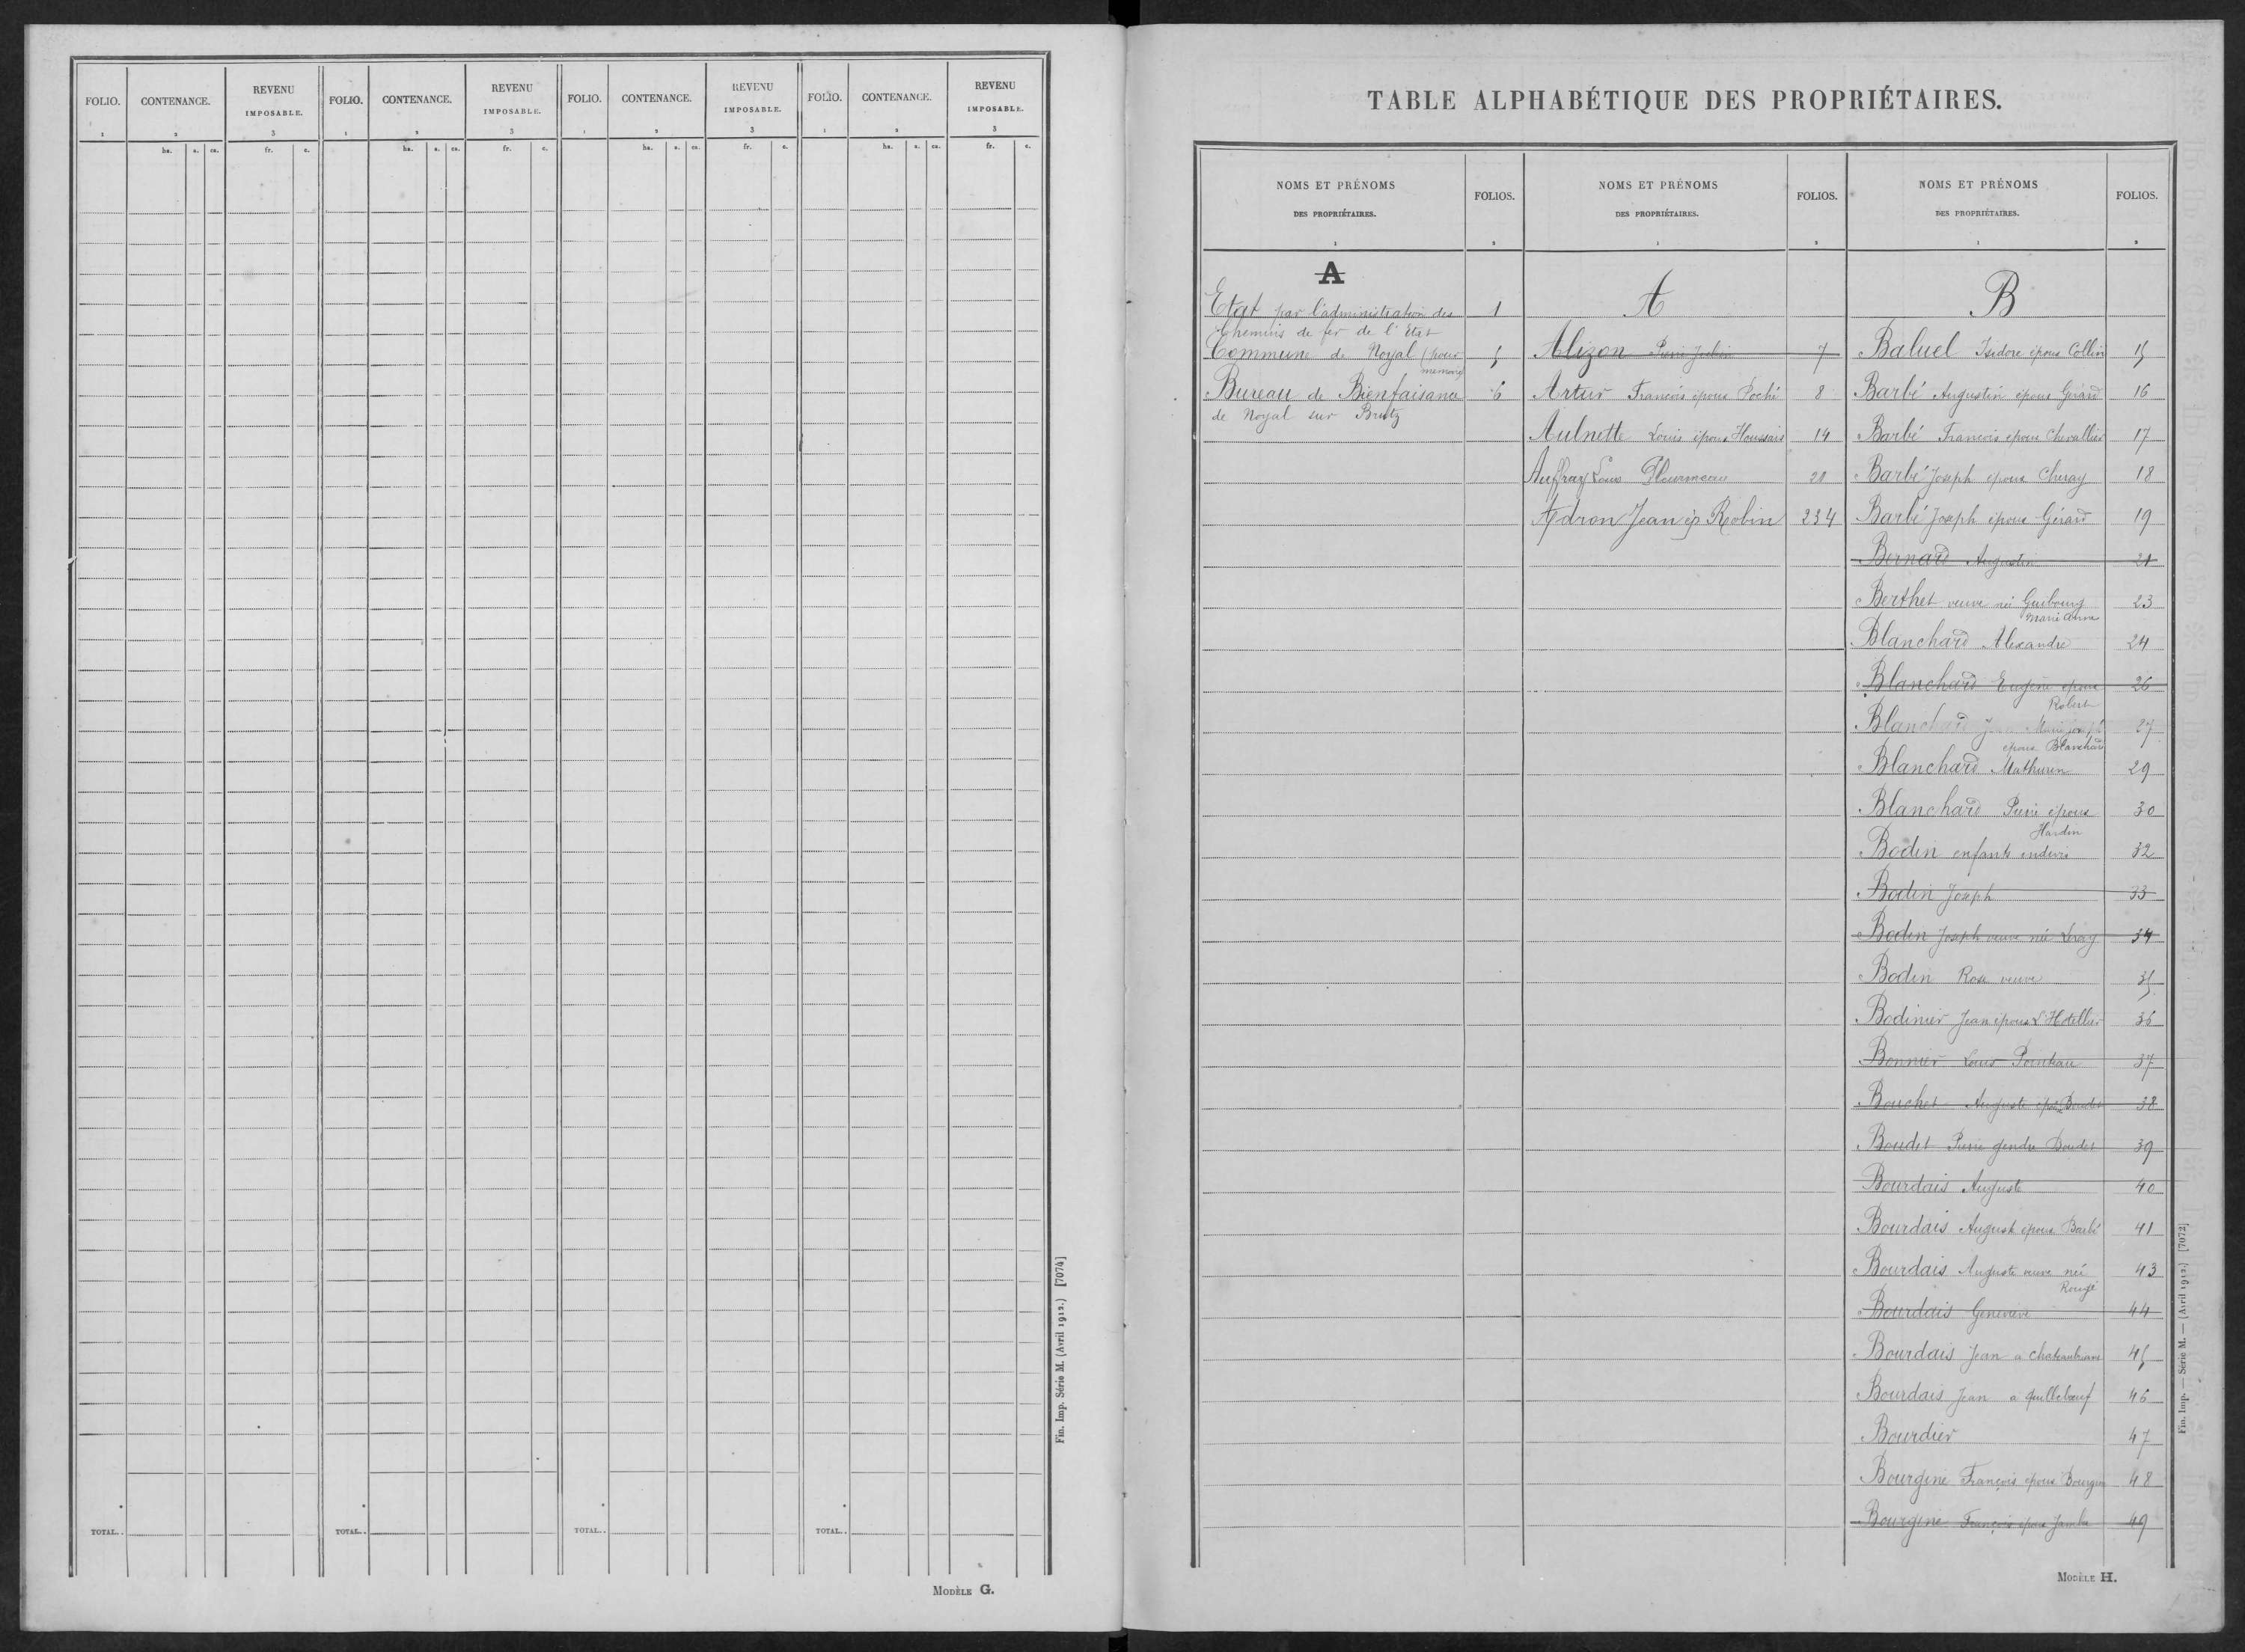 FOLIO. CONTENANCE. REVENU IMPOSABLE. FOLIO. CONTENANCE. REVENU IMPOSABLE. FOLIO. CONTENANCE. REVENU IMPOSABLE. FOLIO. CONTENANCE. REVENU IMPOSABLE.
1 2 3 1 2 3 1 2 3 1 2 3
ha. a. ca. fr. c. ha. a. ca. fr. c. ha. a. ca. fr. c. ha. a. ca. fr. c.
TOTAL.. TOTAL.. TOTAL.. TOTAL..
Fin. Imp. Série M. (Avril 1912.) [7074]
MODÈLE G.
TABLE ALPHABÉTIQUE DES PROPRIÉTAIRES.
NOMS ET PRÉNOMS DES PROPRIÉTAIRES. FOLIOS. NOMS ET PRÉNOMS DES PROPRIÉTAIRES. FOLIOS. NOMS ET PRÉNOMS DES PROPRIÉTAIRES. FOLIOS.
1 2 1 2 1 2
A
Etat par l'administration des 1
Chemins de fer de l'Etat
Commune de Noyal (pour 5
memoire)
Bureau de Bienfaisance 6
de Noyal sur Brutz
A
Alizon Pierre 7
Artur Francois époux Poché 8
Aulnette Louis époux Houssais 14
Auffray Louis 20
Adron Jean ép Robin 234
B
Baluel Isidore époux Collin 15
Barbé Augustin époux Gérard 16
Barbé Francois époux Chevallier 17
Barbé Joseph époux 18
Barbé Joseph époux Gérard 19
Bernard Augustin 21
Berthet veuve née Guibourg 23
Marie Anna
Blanchard Alexandre 24
Blanchard Eugène époux 26
Robert
Blanchard Marie Joseph 27
époux Blanchard
Blanchard Mathurin 29
Blanchard Pierre époux 30
Hardin
Bodin enfants indivis 32
Bodin Joseph 33
Bodin Joseph veuve née Leray 34
Bodin Rose veuve 35
Bodinier Jean époux L'Hotellier 36
Bonnier Louis 37
Bouchet Auguste épx Boudet 38
Boudet Pierre gendre Boudet 39
Bourdais Auguste 40
Bourdais Auguste époux Barbé 41
Bourdais Auguste veuve née 43
Rougé
Bourdais Geneviève 44
Bourdais Jean a Chateaubriant 45
Bourdais Jean a Quilleboeuf 46
Bourdier 47
Bourgine François époux Bourgine 48
Bourgine François époux 49
Fin. Imp. — Série M. — (Avril 1912.) [7072]
MODÈLE H.